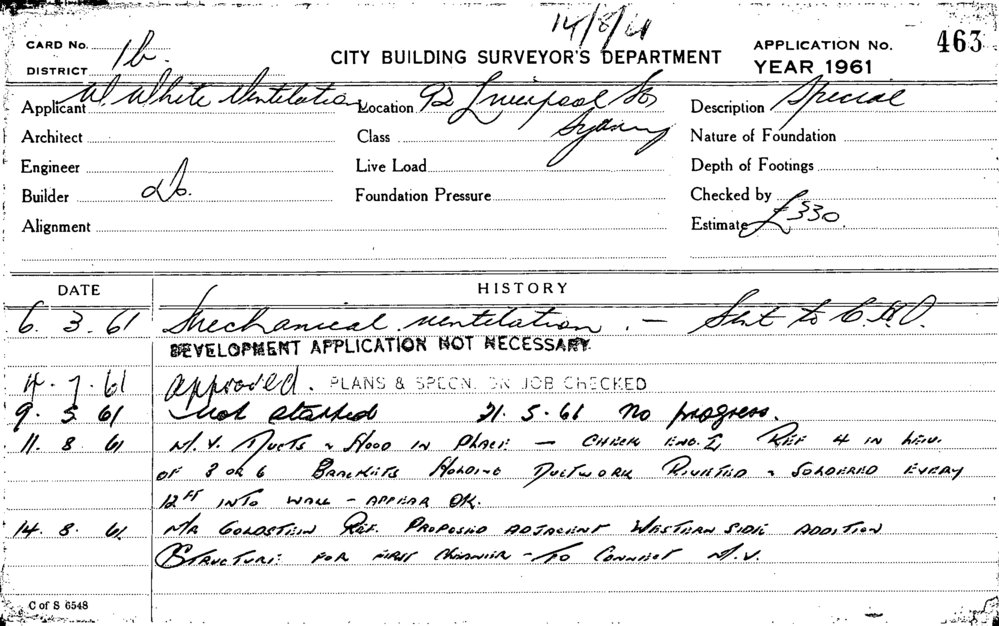 14/8/61
CARD No. 1b. CITY BUILDING SURVEYOR'S DEPARTMENT APPLICATION No. 463
DISTRICT YEAR 1961
Applicant W. White Ventilation Location 92 Liverpool St Description Special
Architect Class Sydney Nature of Foundation
Engineer Live Load Depth of Footings
Builder do. Foundation Pressure Checked by
Alignment Estimate £330.
DATE HISTORY
6. 3. 61 Mechanical ventilation. — Sent to C.H.O.
DEVELOPMENT APPLICATION NOT NECESSARY
4. 7. 61 approved. PLANS & SPECN. ON JOB CHECKED
9. 5. 61 Not started 21. 5. 61 no progress.
11. 8. 61 M.V. Ducts & Hood in place — Check Ref 4 in lieu
of 3 or 6 Brackets Holding Ductwork Riveted & Soldered every
12 FT into wall — appear OK.
14. 8. 61 Mr Goldstein Ref. Proposed adjacent Western side addition
Structure for first — to connect M.V.
C of S 6548